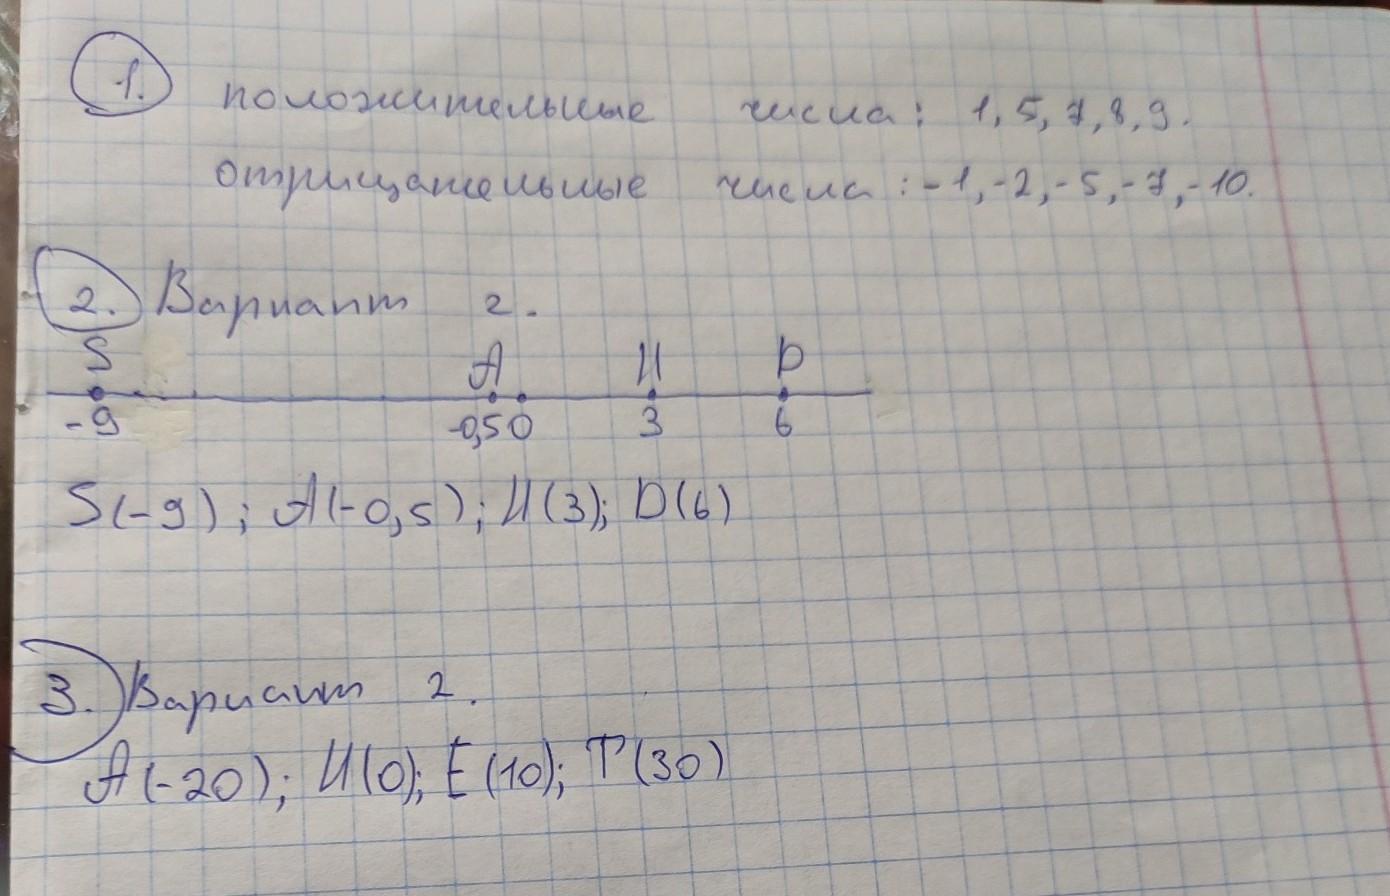 1. положительные числа: 1, 5, 7, 8, 9.
отрицательные числа: -1, -2, -5, -7, -10.
2. Вариант 2.
S A И D
-9 -0,5 0 3 6
S(-9); A(-0,5); И(3); D(6)
3. Вариант 2.
A(-20); И(0); E(10); T(30)